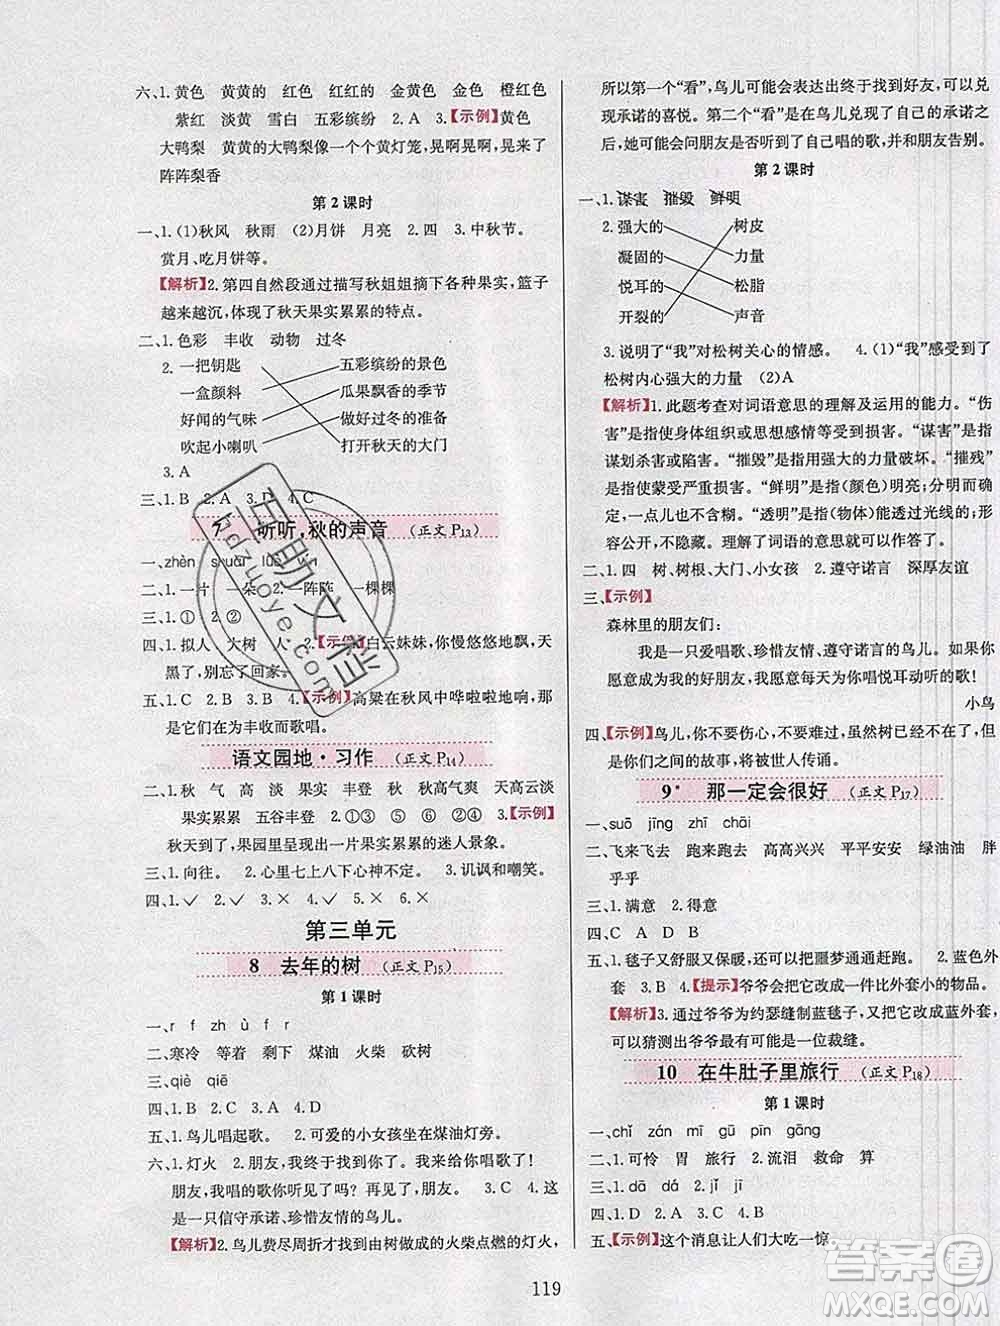 六、1.黄色 黄黄的 红色 红红的 金黄色 金色 橙红色
紫红 淡黄 雪白 五彩缤纷 2.A 3.【示例】黄色
大鸭梨 黄黄的大鸭梨像一个个黄灯笼,晃晃悠悠,飘来
阵阵梨香
第2课时
一、1.(1)秋风 秋雨 (2)月饼 月亮 2.四 3.中秋节。
赏月、吃月饼等。
【解析】2.第四自然段通过描写秋姐姐摘下各种果实,篮子
越来越沉,体现了秋天果实累累的特点。
二、1.色彩 丰收 动物 过冬
2.一把钥匙 五彩缤纷的景色
一盒颜料 瓜果飘香的季节
好闻的气味 做好过冬的准备
吹起小喇叭 打开秋天的大门
3.A
三、1.B 2.A 3.D 4.C
听听,秋的声音 (正文P13)
一、zhèn shuāi
二、1.一片 一朵 一阵阵 一棵棵
三、1.① ② 2.②
四、1.拟人 大树 人 2.【示例】白云妹妹,你慢悠悠地飘,天
黑了,别忘了回家。
五、1.C 2.A 3.B 4.【示例】高粱在秋风中哗啦啦地响,那
是它们在为丰收而歌唱。
语文园地·习作 (正文P14)
一、1.秋 气 高 淡 果实 丰登 秋 秋高气爽 天高云淡
果实累累 五谷丰登 2.①③ ①② ②④ 3.【示例】
秋天到了,果园里呈现出一片果实累累的迷人景象。
三、1.向往。 2.心里七上八下心神不定。 3.讥讽和嘲笑。
四、1.✓ 2.✓ 3.✓ 4.✓ 5.× 6.×
第三单元
8 去年的树 (正文P15)
第1课时
一、r f zh ù f r
二、寒冷 等着 剩下 煤油 火柴 砍树
三、qiè qiē
四、1.B 2.C 3.A 4.D
五、1.鸟儿唱起歌。 2.可爱的小女孩坐在煤油灯旁。
六、1.灯火 2.朋友,我终于找到你了。我来给你唱歌了!
朋友,我唱的歌你听见了吗?再见了,朋友。 3.C 4.这
是一只信守承诺、珍惜友情的鸟儿。
【解析】2.鸟儿费尽周折才找到由树做成的火柴点燃的灯火,
所以第一个“看”,鸟儿可能会表达出终于找到好友,可以兑
现承诺的喜悦。第二个“看”是在鸟儿兑现了自己的承诺之
后,她可能会问朋友是否听到了自己唱的歌,并和朋友告别。
第2课时
一、1.谋害 摧毁 鲜明
2.强大的 树皮
凝固的 力量
悦耳的 松脂
开裂的 声音
3.说明了“我”对松树关心的情感。 4.(1)“我”感受到了
松树内心强大的力量 (2)A
【解析】1.此题考查对词语意思的理解及运用的能力。“伤
害”是指使身体组织或思想感情等受到损害。“谋害”是指
谋划杀害或陷害。“摧毁”是指用强大的力量破坏。“摧残”
是指使蒙受严重损害。“鲜明”是指(色彩)明亮;分明而确
定,一点儿也不含糊。“透明”是指(物体)能透过光线的;形
容公开,不隐藏。理解了词语的意思就可以作答了。
二、1.四 树、树根、大门、小女孩 2.遵守诺言 深厚友谊
三、【示例】
森林里的朋友们:
我是一只爱唱歌、珍惜友情、遵守诺言的鸟儿。如果你
愿意成为我的好朋友,我愿意每天为你唱悦耳动听的歌!
小鸟
四、【示例】鸟儿,你不要伤心,不要难过,虽然树已经不在了,但
是你们之间的故事,将被世人传诵。
9* 那一定会很好 (正文P17)
一、suō jīng zhī chāi
二、飞来飞去 跑来跑去 高高兴兴 平平安安 绿油油 胖
乎乎
三、1.满意 2.得意
四、C A D B
五、1.毯子又舒服又保暖,还可以把噩梦通通赶跑。 2.蓝色外
套 3.B 4.【提示】爷爷可能会把它改成一件比外套小的物品。
【解析】3.通过爷爷为约瑟缝制蓝毯子,又改成蓝色外套,我
可以猜测出爷爷最有可能是一位裁缝。
10 在牛肚子里旅行 (正文P18)
第1课时
一、chǐ zán mī gū pīn gāng
二、1.可怜 胃 旅行 2.流泪 救命 算
三、1.dā dá 2.jǐ jī
四、1.D 2.A 3.C 4.B
五、【示例】这个消息让人们大吃一惊。
119
互助文档
hdzuoye.com
答案圈
MXQE.COM